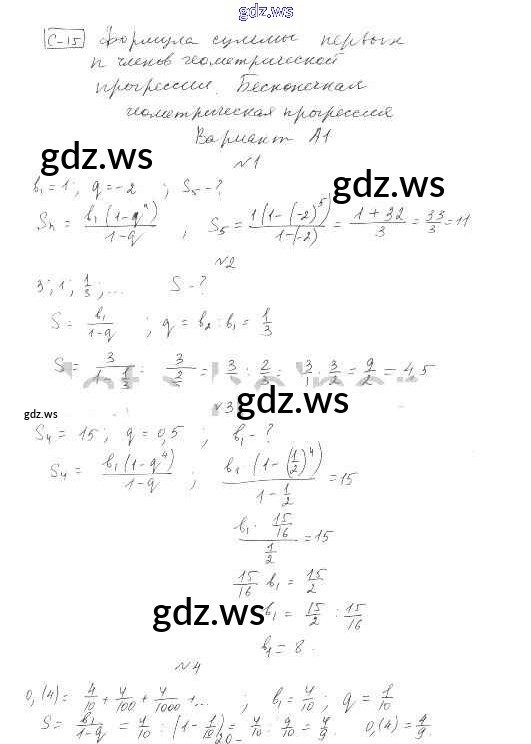 gdz.ws
С-15 Формула суммы первых
n членов геометрической
прогрессии. Бесконечная
геометрическая прогрессия
Вариант А1
gdz.ws
№1
gdz.ws
b₁ = 1; q = -2 ; S₅ - ?
Sₙ = b₁(1-qⁿ)/(1-q) , S₅ = 1(1-(-2)⁵)/(1-(-2)) = (1+32)/3 = 33/3 = 11
№2
3; 1; 1/3; ... S - ?
S = b₁/(1-q) ; q = b₂ : b₁ = 1/3
S = 3/(1 - 1/3) = 3/(2/3) = 3/1 : 2/3 = 3/1 · 3/2 = 9/2 = 4,5
gdz.ws
№3
gdz.ws
S₄ = 15; q = 0,5 ; b₁ - ?
S₄ = b₁(1-q⁴)/(1-q) ; b₁·(1-(1/2)⁴)/(1 - 1/2) = 15
(b₁ · 15/16)/(1/2) = 15
15/16 b₁ = 15/2
b₁ = 15/2 : 15/16
gdz.ws
b₁ = 8.
№4
gdz.ws
0,(4) = 4/10 + 4/100 + 4/1000 + ... ; b₁ = 4/10 ; q = 1/10
S = b₁/(1-q) = 4/10 : (1 - 1/10) = 4/10 : 9/10 = 4/9. 0,(4) = 4/9.
-20-
gdz.ws